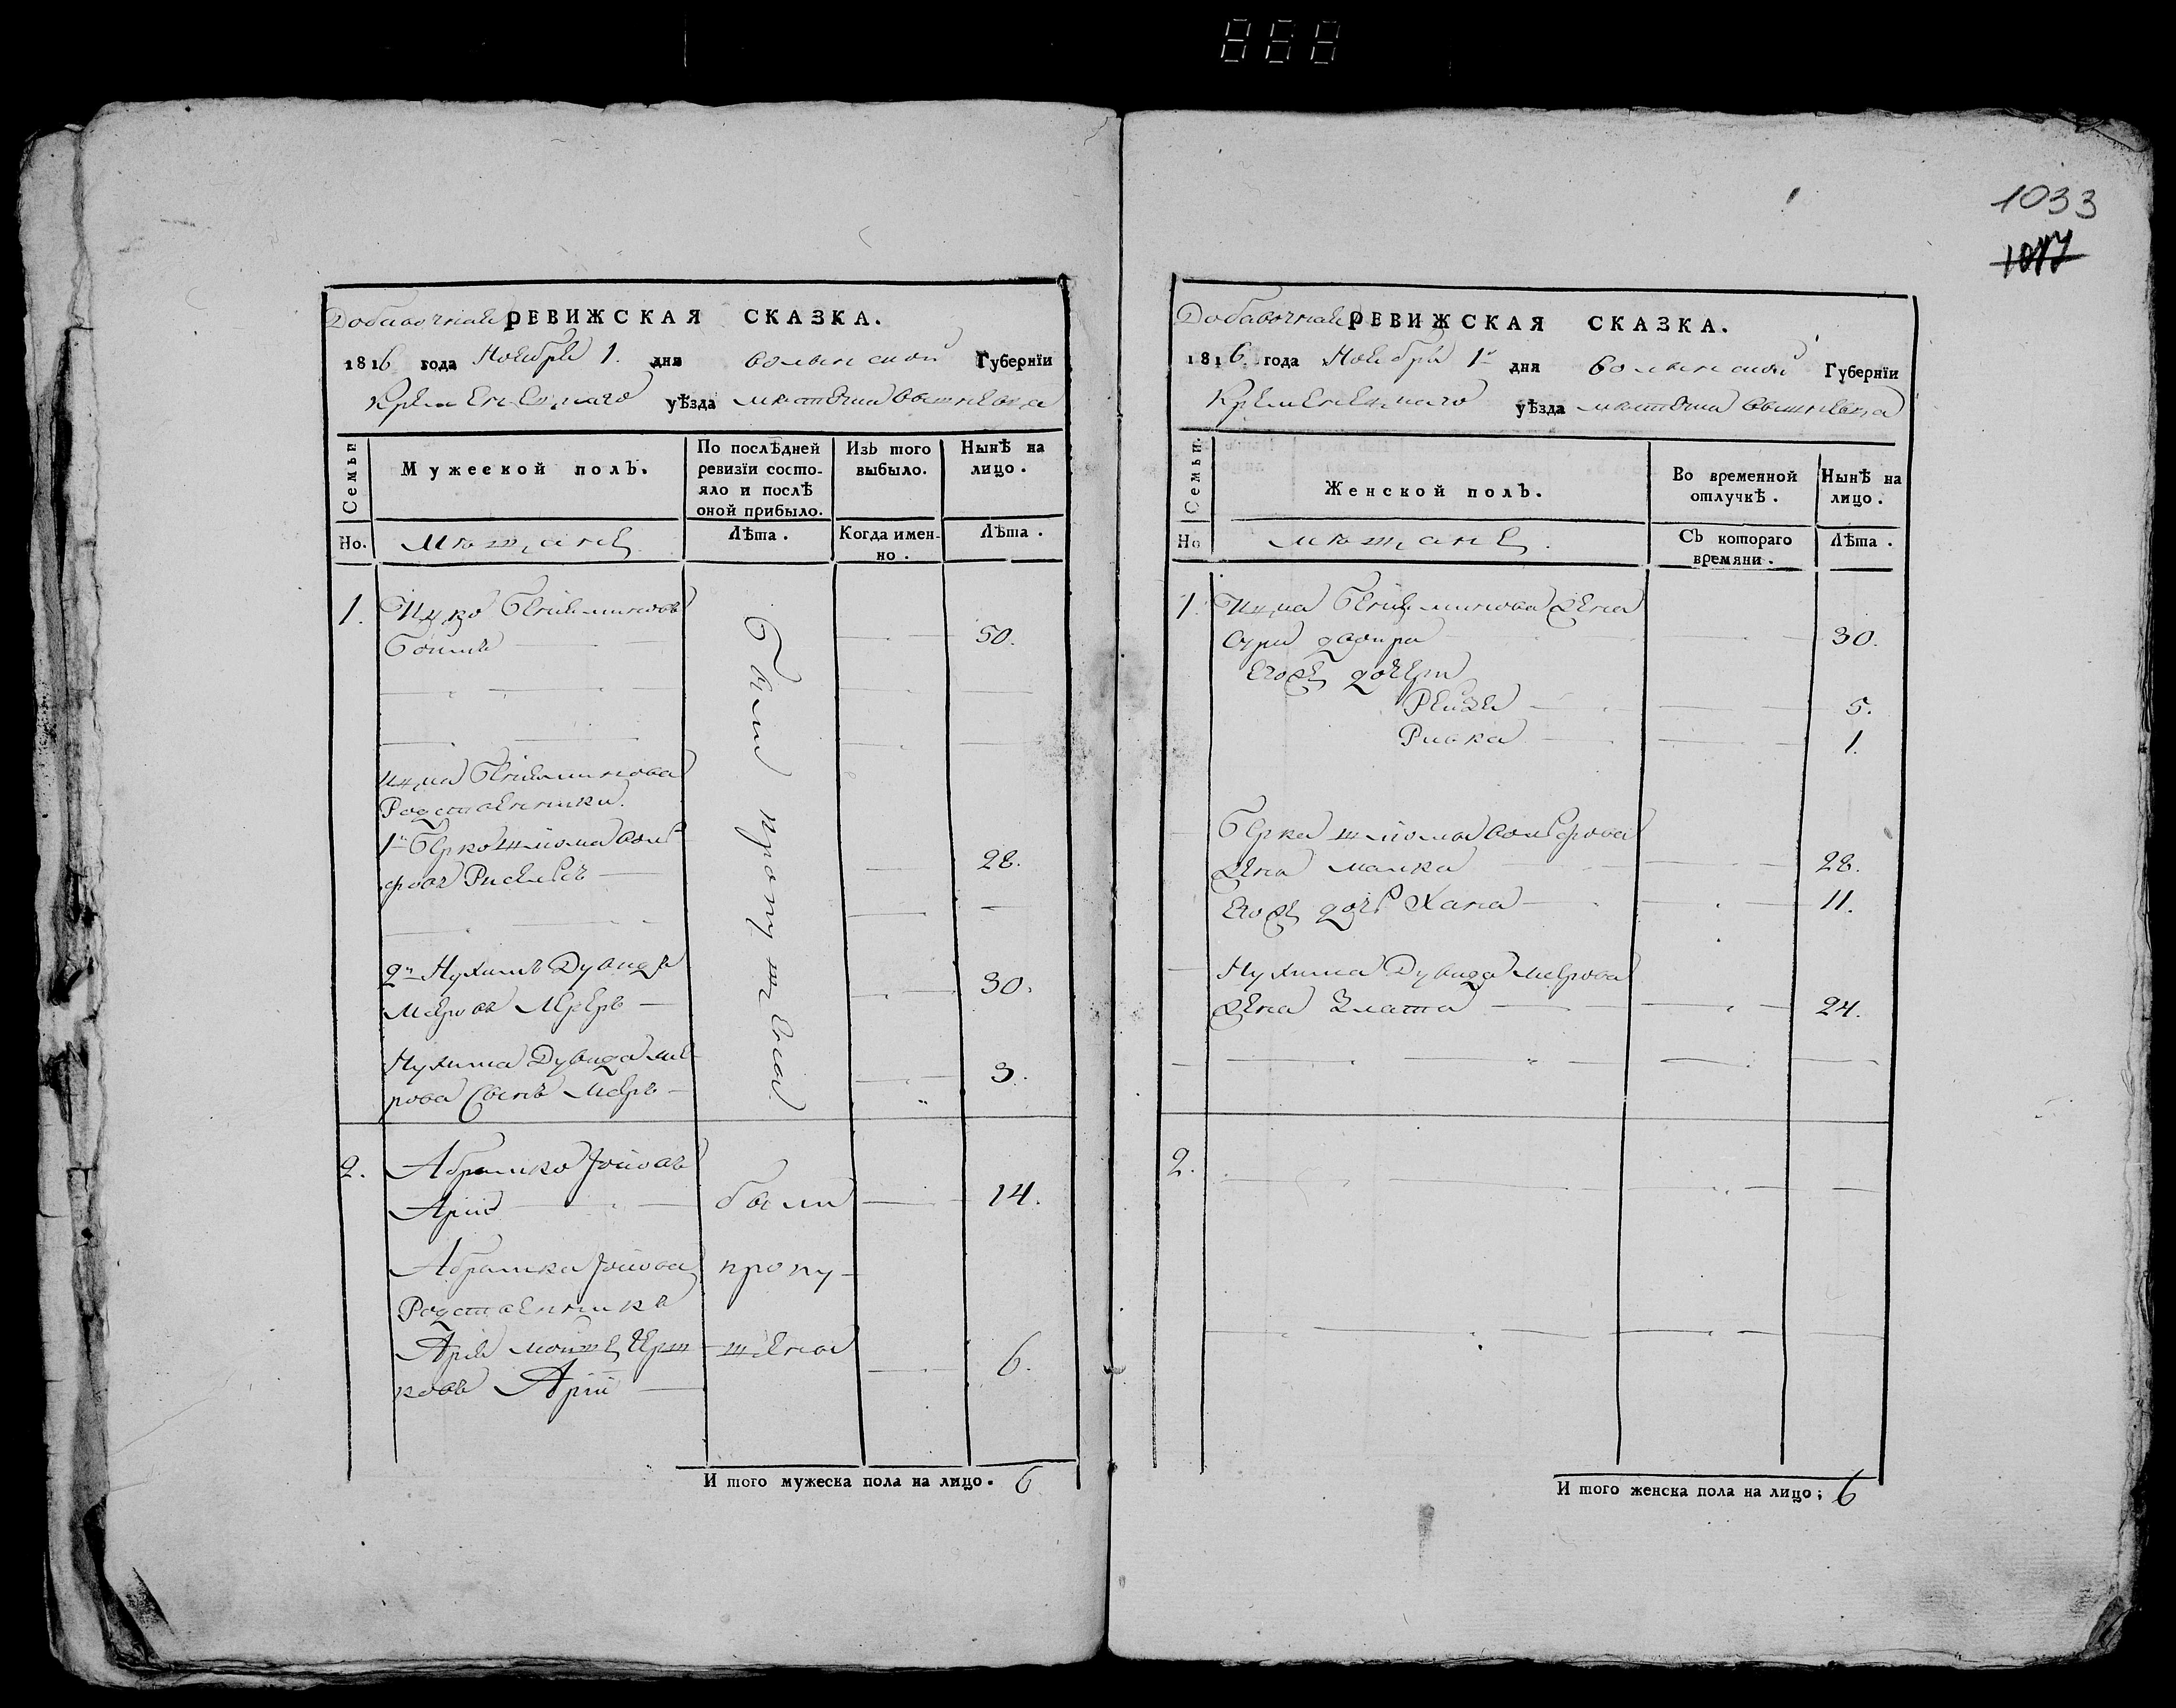 1033
1017
Добавочная РЕВИЖСКАЯ СКАЗКА.
1816 года Ноября 1. дня Волынской Губернїи
Кременецкаго уѣзда местечка Вышневца
Семьи
Мужеской полъ.
По послѣдней
ревизїи состо-
яло и послѣ
оной прибыло.
Изъ того
выбыло.
Нынѣ на
лицо.
Но.
Мещане
Лѣта.
Когда имен-
но.
Лѣта.
1. Ицко Беніяминовъ
50.
Были пропущены
Ицка Беніяминова
Родственники.
1й Берко Шлиома Вольо
фовъ 28.
2й Нухимъ Дувидъ
Меровъ 30.
Нухима Дувида Ме-
рова Сынъ Меръ 3.
2. Абрамко
Арій были 14.
Абрамка пропу-
Родственникъ
Арія щены 6.
ковъ Арій
И того мужеска пола на лицо. 6
Добавочная РЕВИЖСКАЯ СКАЗКА.
1816 года Ноября 1го дня Волынской Губернїи
Кременецкаго уѣзда местечка Вышневца
Семьи.
Женской полъ.
Во временной
отлучкѣ.
Нынѣ на
лицо.
Но
мещане.
Съ котораго
времяни.
Лѣта.
1. Ицка Беніяминова жена
Сура Двойра 30.
Егоже дочери
Рейзя 5.
Ривка 1.
Берка Шлиомы Вольфова
жена Малка 28.
Егоже дочь Хана 11.
Нухима Дувида Мерова
жена Злата 24.
2.
И того женска пола на лицо; 6